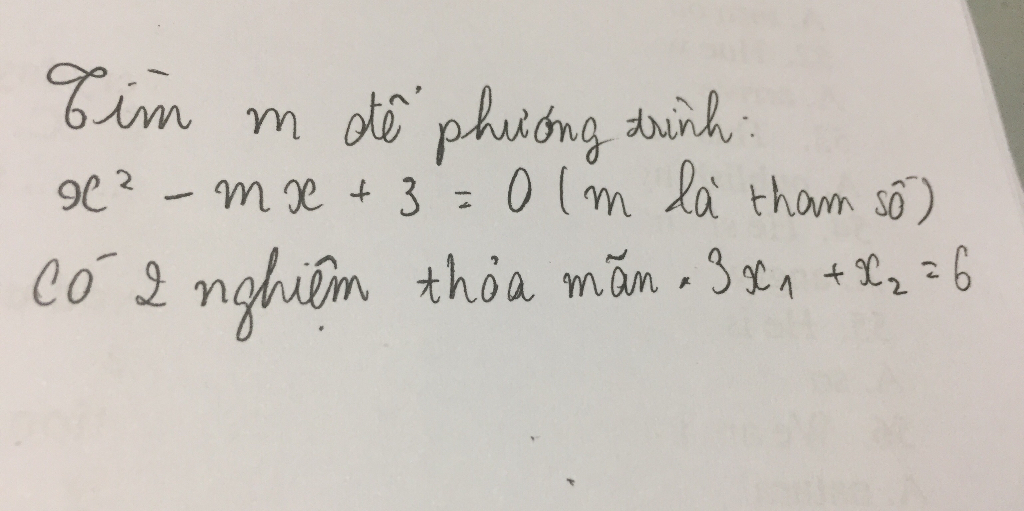 Tìm m để phương trình:
x² - mx + 3 = 0 (m là tham số)
Có 2 nghiệm thỏa mãn. 3x₁ + x₂ = 6